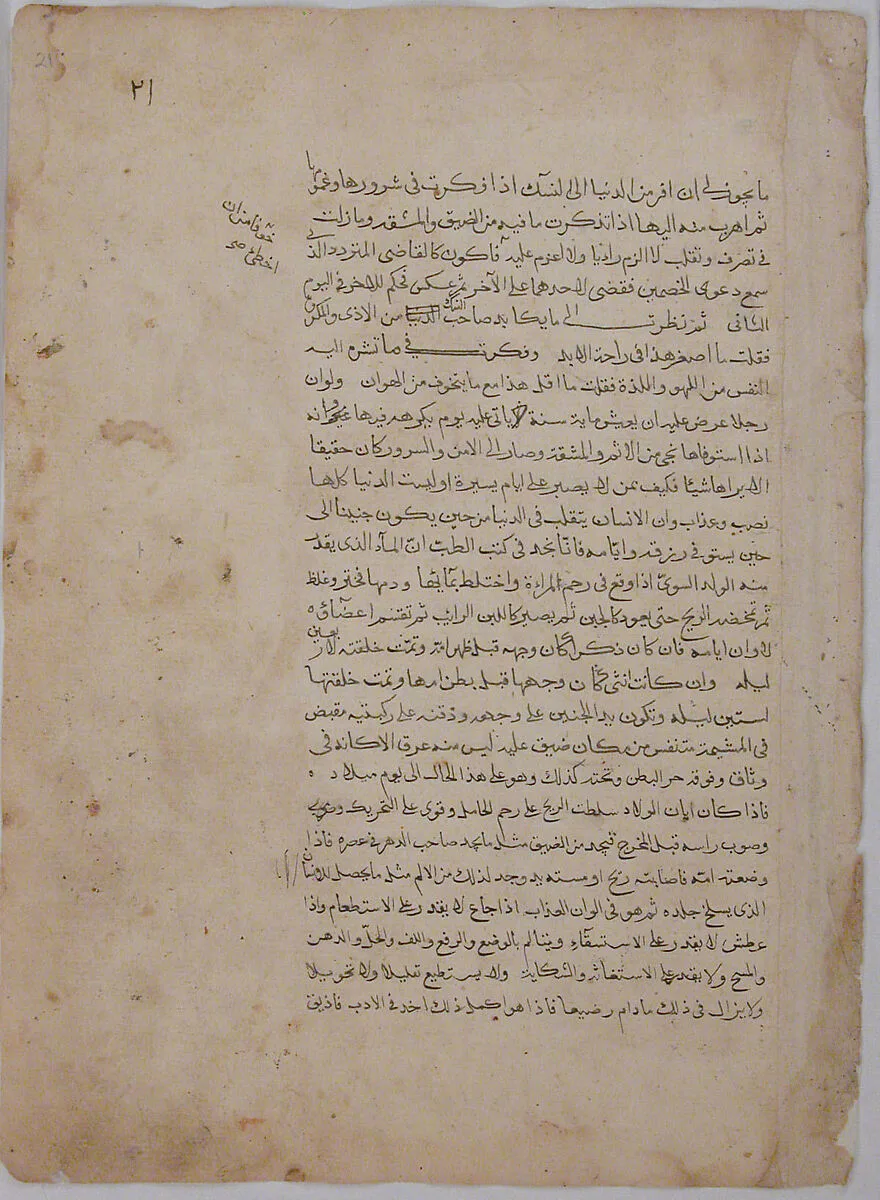 21
٢١
ما يجوز لي ان افر من الدنيا الى النسك اذا فكرت في شرورها وغمو
ثم اهرب منه اليها اذا تذكرت ما فيه من الضيق والمشقه وما زلت
في تصرف وتقلب لا الزم رايا ولا اعزم عليه فاكون كالقاضي المتردد الذي
سمع دعوى الخصمين فقضى لاحدهما على الآخر ثم عكس فحكم للاخر في اليوم
الثاني ثم نظرت الى ما يكابد صاحب النسك من الاذى والمكروه
فقلت ما اصغر هذا في راحة الابد وفكرت في ما تشره اليه
النفس من اللهو واللذة فقلت ما اقل هذا مع ما يتخوف من الهوان ولو ان
رجلا عرض عليه ان يعيش ماية سنة ياتي عليه يوم يكره فيها وانه
اذا استوفاها نجى من الاثم والمشقة وصار الى الامن والسرور كان حقيقا
الا يراها شيئا فكيف بمن لا يصبر على ايام يسيرة او ليست الدنيا كلها
نصب وعذاب وان الانسان يتقلب في الدنيا من حين يكون جنينا الى
حين يستوفي رزقه وايامه فانا نجد في كتب الطب ان المآء الذي يقدر
منه الولد السوي اذا وقع في رحم المراءة واختلط بمائها ودمها فخثر وغلظ
ثم تمخضه الريح حتى يعود كالجبن ثم يصير كاللبن الرائب ثم تقتسم اعضآؤه
لاوان ايامه فان كان ذكرا كان وجهه قبل ظهر امه وتمت خلقته لاربعين
ليله وان كانت انثى كان وجهها قبل بطن امها وتمت خلقتها
لستين ليله وتكون يد الجنين على وجهه وذقنه على ركبتيه مقبض
في المشيمة متنفس من مكان ضيق عليه ليس منه عرق الا كانه في
وثاق وفوقه حر البطن وتحته كذلك وهو على هذا الحال الى يوم ميلاده
فاذا كان ابان الولاد سلطت الريح على رحم الحامل وقوي على التحريك
وصوب راسه قبل المخرج فيجد من الضيق مثل ما يجد صاحب الدهن في عصره فاذا
وضعته امه فاصابته ريح او مسته يد وجد لذلك من الالم مثل ما يحصل للانسان
الذي يسلخ جلده ثم هو في الوان العذاب اذا جاع لا يقدر على الاستطعام واذا
عطش لا يقدر على الاستسقآء ويتالم بالوضع والرفع واللف والحل والدهن
والمسح ولا يقدر على الاستغاثه والشكاية ولا يستطيع تقليلا ولا تحويلا
ولا يزال في ذلك مادام رضيعا فاذا هو اكمل ذلك اخذ في الادب فاذيق